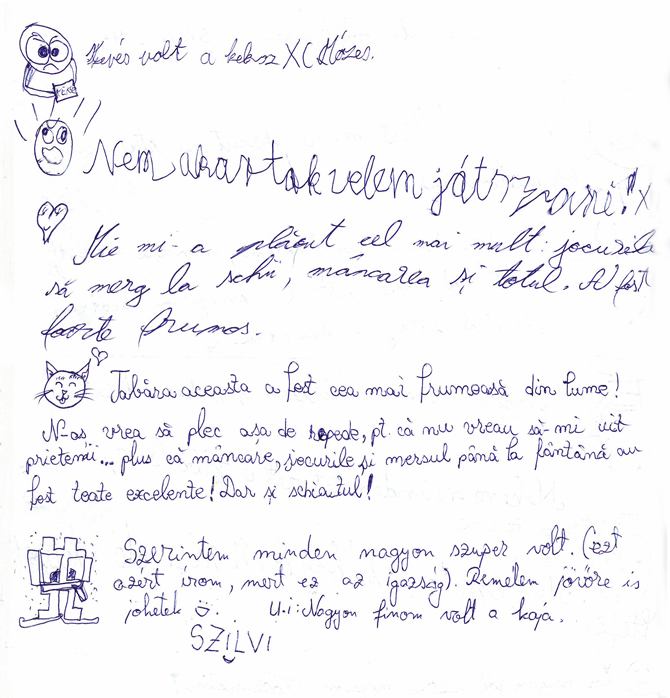 Kevés volt a keksz XC Mózes.
KEKSZ
Nem akartak velem játszani! X
Mie mi-a plăcut cel mai mult: jocurile
să merg la schii, mâncarea și totul. A fost
foarte frumos.
Tabăra aceasta a fost cea mai frumoasă din lume!
N-aș vrea să plec așa de repede, pt. că nu vreau să-mi uit
prietenii... plus că mâncare, jocurile și mersul până la fântână au
fost toate excelente! Dar și schiatul!
Szerintem minden nagyon szuper volt. (ezt
azért írom, mert ez az igazság). Remélem jövőre is
jöhetek. U.i: Nagyon finom volt a kaja.
SZILVI